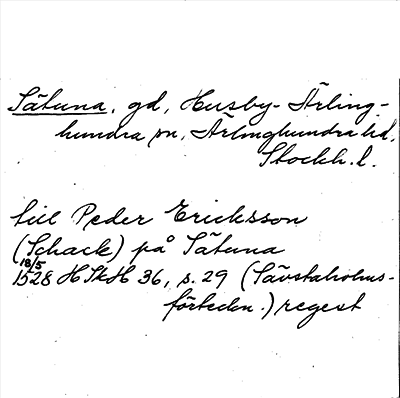 Sätuna, gd, Husby-Ärling-
hundra sn, Ärlinghundra hd,
Stockh. l.
till Peder Ericksson
(Schack) på Sätuna
18/5
1528 HSkH 36, s. 29 (Sävstaholms-
förtedn.) regest